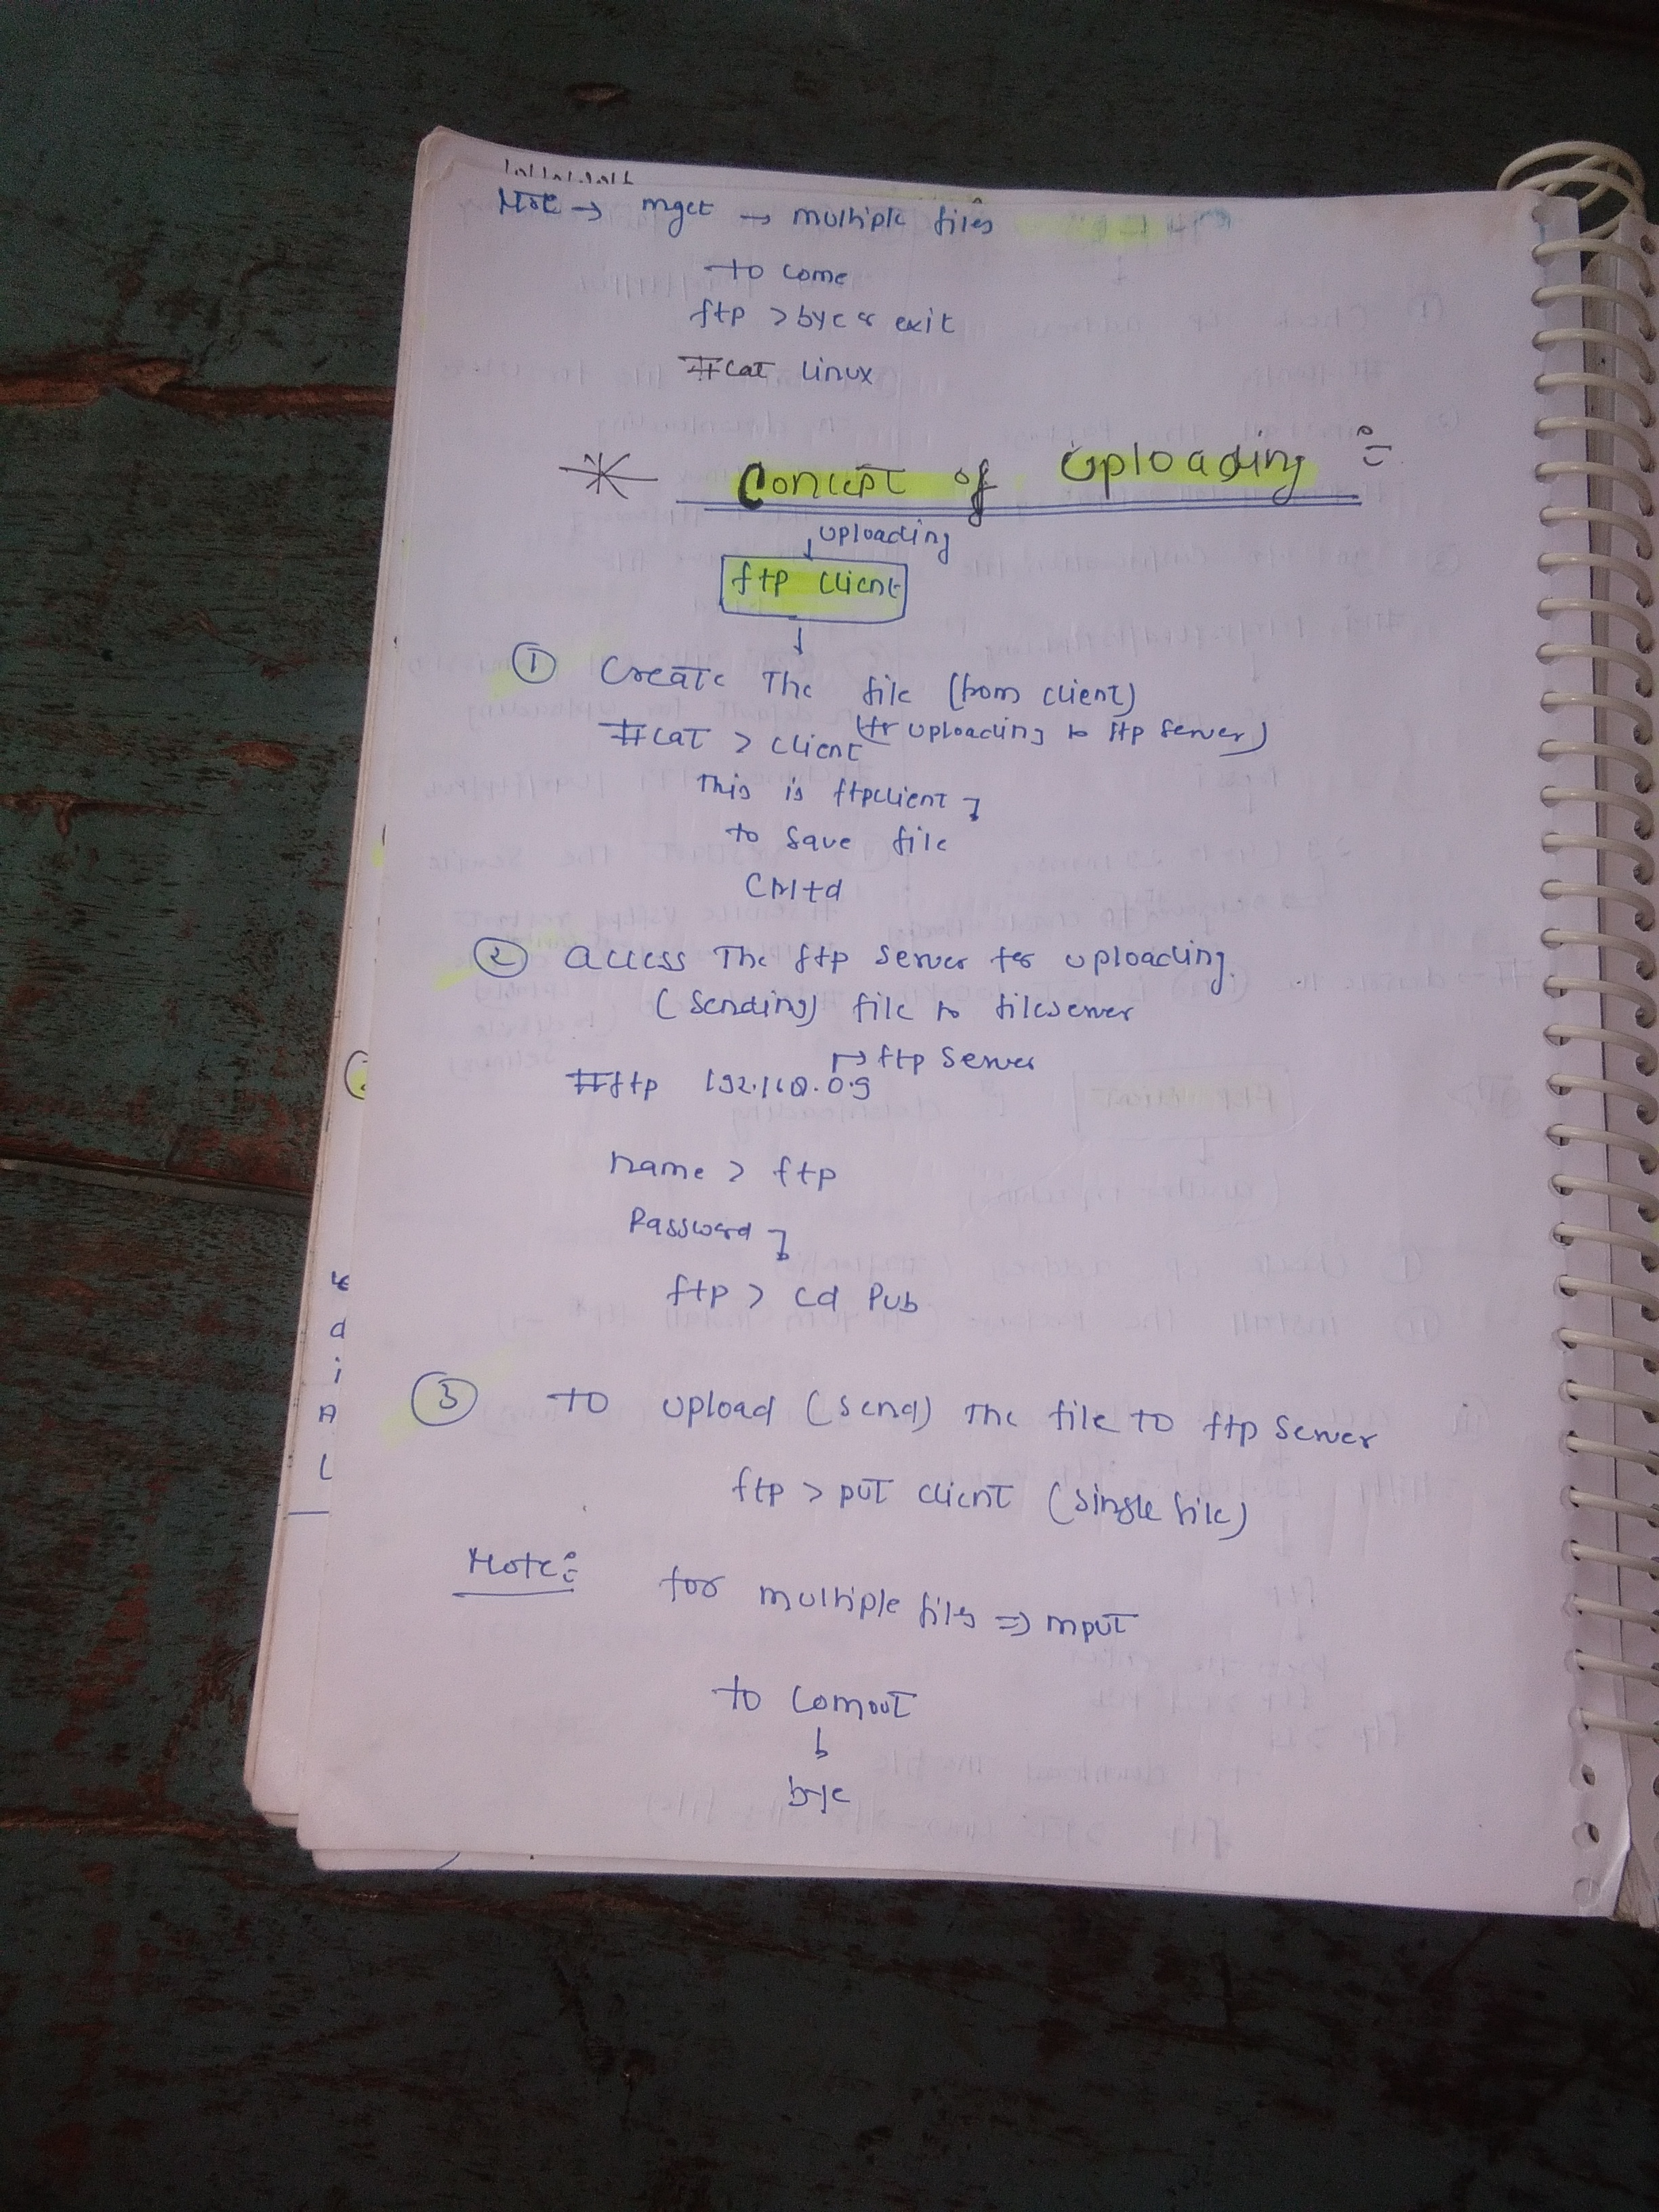 Note → mget → multiple files
to come
ftp > bye or exit
#cat linux
Concept of Uploading :-
↓ uploading
ftp client
↓
① Create The file (from client)
(for uploading to ftp server)
#cat > client
This is ftpclient
to save file
Ctrl+d
② access The ftp server for uploading.
(sending) file to fileserver
→ ftp server
#ftp 192.168.0.9
name > ftp
Password
ftp > cd Pub
③ TO upload (send) The file TO ftp server
ftp > put client (single file)
Note:- for multiple files => mput
to comout
↓
bye
k
d
i
A
L